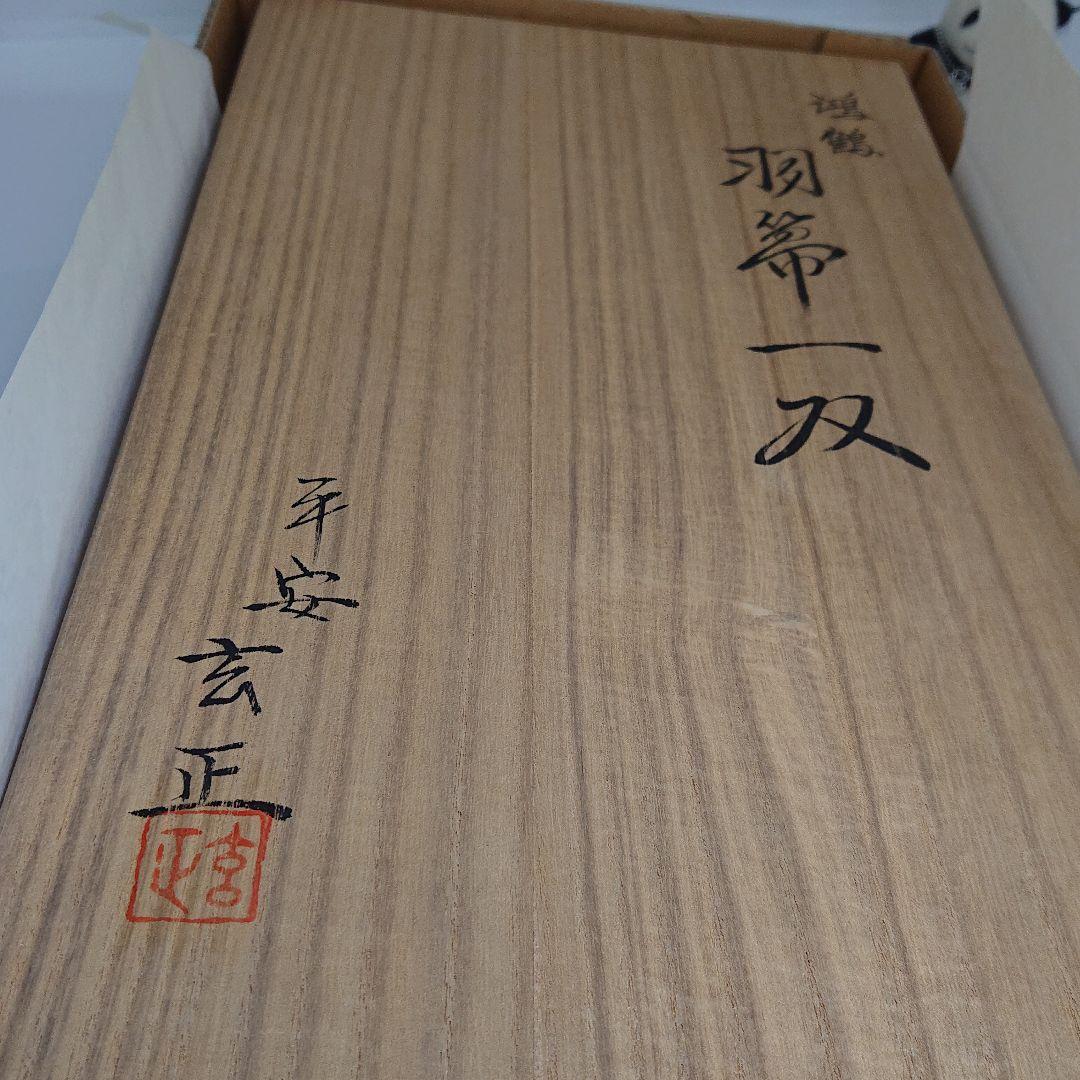 鴻鶴
羽箒一双
平安
玄正
玄正